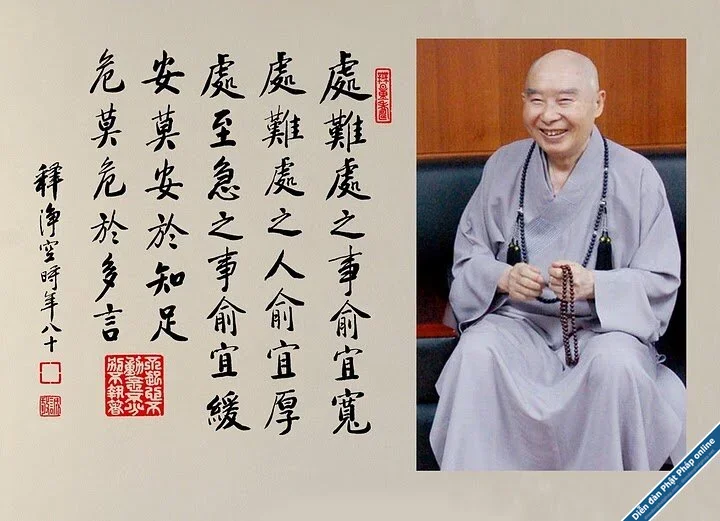 處難處之事俞宜寬
處難處之人俞宜厚
處至急之事俞宜緩
安莫安於知足
危莫危於多言
釋淨空時年八十
Diễn đàn Phật Pháp online